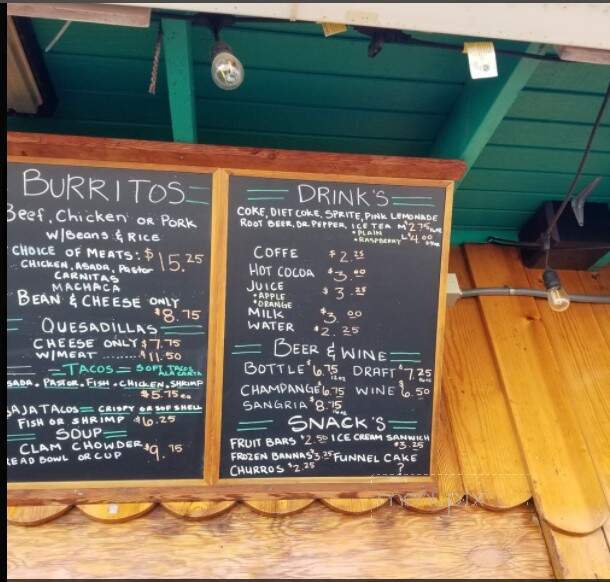 BURRITOS
Beef, Chicken or Pork
w/Beans & Rice
CHOICE OF MEATS: $15.25
CHICKEN, ASADA, Pastor
CARNITAS
MACHACA
BEAN & CHEESE ONLY
$8.75
QUESADILLAS
CHEESE ONLY $7.75
W/MEAT ......... $11.50
TACOS = SOFT TACOS
ALA CARTE
SADA, PASTOR, FISH, CHICKEN, SHRIMP
$5.75 ea
BAJA TACOS = CRISPY OR SOF SHELL
FISH OR SHRIMP $6.25
SOUP
CLAM CHOWDER $9.75
EAD BOWL OR CUP
DRINK'S
COKE, DIET COKE, SPRITE, PINK LEMONADE
ROOT BEER, DR. PEPPER, ICE TEA M $2.75
• PLAIN
• RASPBERRY
L $4.00
COFFE $2.25
HOT COCOA $3.00
JUICE $3.25
• APPLE
• ORANGE
MILK $3.00
WATER $2.25
BEER & WINE
BOTTLE $6.75 DRAFT $7.25
CHAMPANGE $6.75 WINE $6.50
SANGRIA $8.75
SNACK'S
FRUIT BARS $2.50 ICE CREAM SANWICH
$3.25
FROZEN BANNAS $3.25 FUNNEL CAKE
CHURROS $2.25 ?